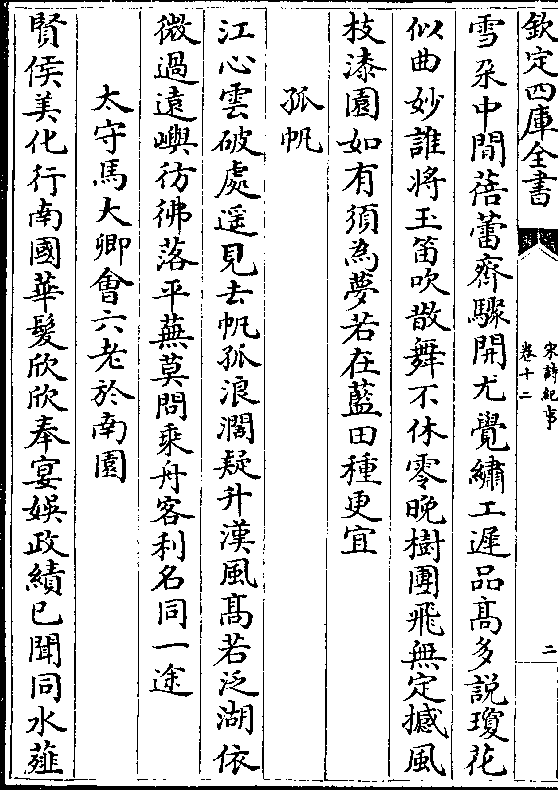 欽定四庫全書
宋詩紀事
卷十二
二
雪朶中間蓓蕾齊驟開尤覺繡工遲品髙多說瓊花
似曲妙誰將玉笛吹散舞不休零晚樹團飛無定撼風
枝漆園如有須為夢若在藍田種更宜
孤帆
江心雲破處遥見去帆孤浪濶疑升漢風髙若泛湖依
微過遠嶼彷彿落平蕪莫問乘舟客利名同一途
太守馬大卿會六老於南園
賢侯美化行南國華髮欣欣奉宴娛政績已聞同水薤